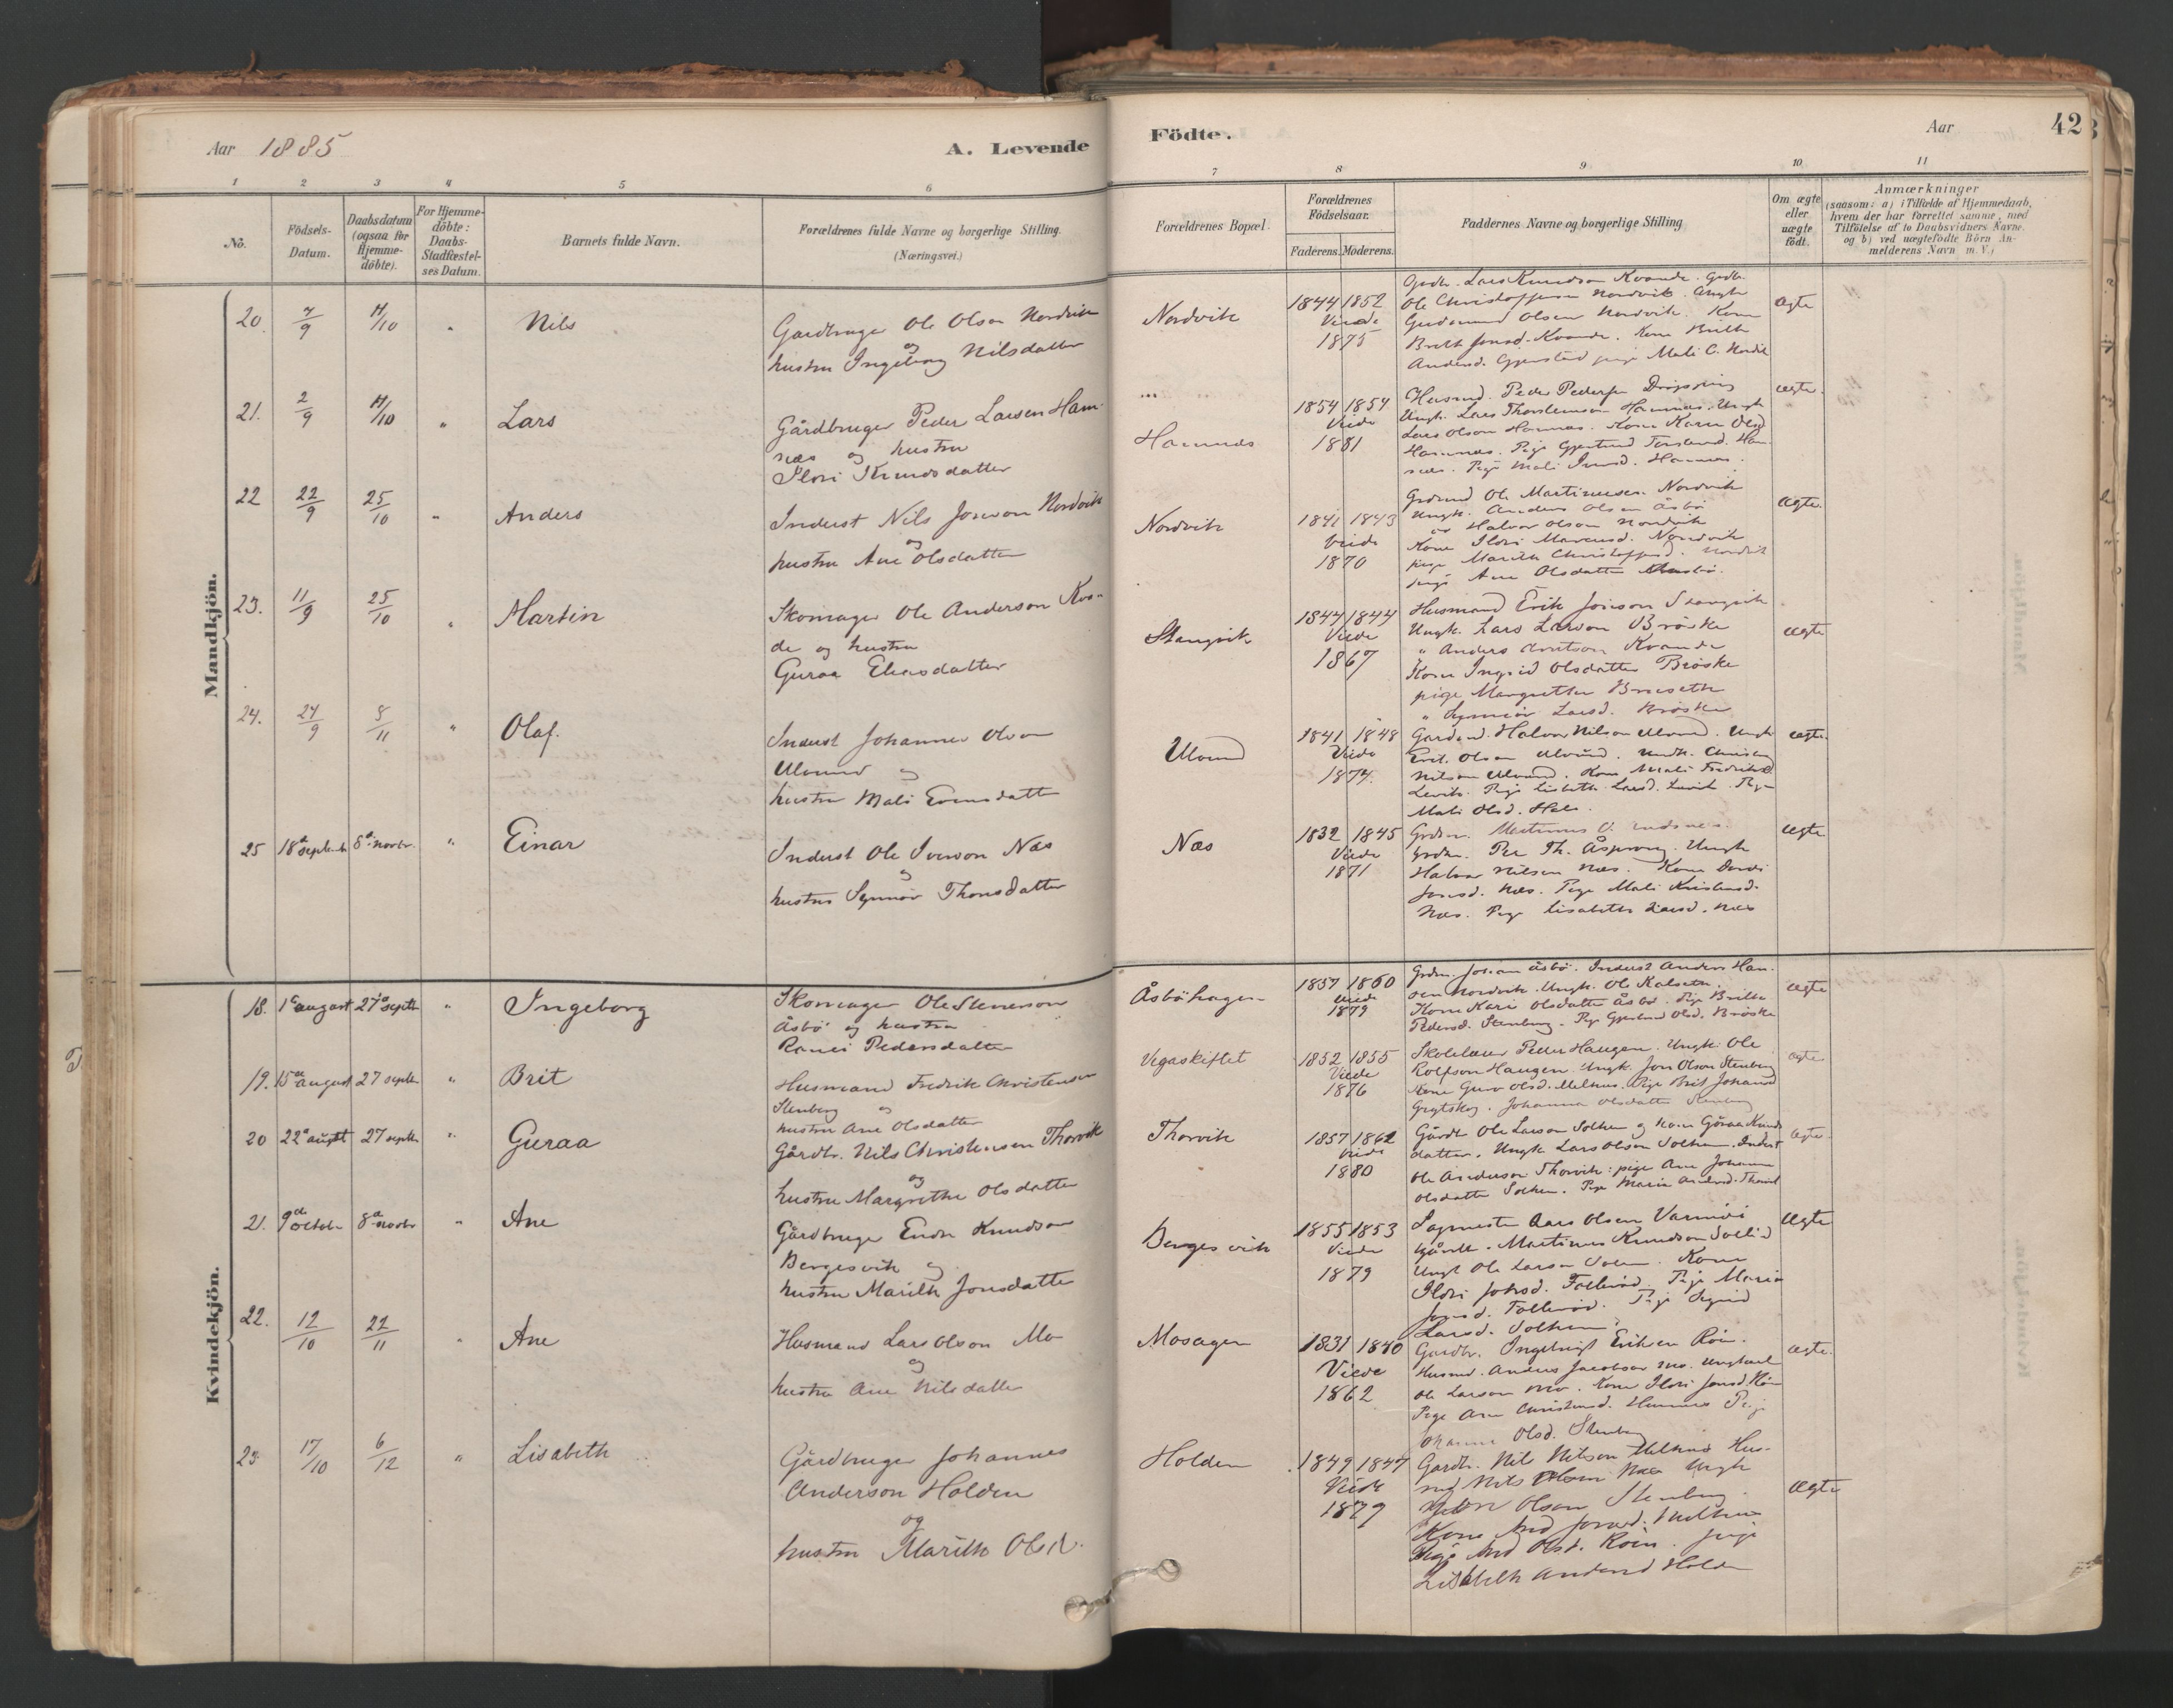 Aar 1885
A. Levende
Födte.
Aar
42
1 2 3 4 5 6 7 8 9 10 11
No.
Födsels-
Datum.
Daabsdatum
(ogsaa for
Hjemme-
döbte).
For Hjemme-
döbte:
Daabs-
Stadfæstel-
ses Datum.
Barnets fulde Navn.
Forældrenes fulde Navne og borgerlige Stilling.
(Næringsvei.)
Forældrenes Bopæl.
Forældrenes
Födselsaar.
Faderens. Moderens.
Faddernes Navne og borgerlige Stilling
Om ægte
eller
uægte
födt.
Anmærkninger
(saasom: a) i Tilfælde af Hjemmedaab,
hvem der har forrettet samme, med
Tilföielse af to Daabsvidners Navne.
og b) ved uægtefödte Börn An-
melderens Navn m. V.)
Mandkjön.
20. 7/9 11/10 " Nils
Gaardbruger Ole Olson Nordvik
og
hustru Ingeborg Nilsdatter
Nordvik
1844 1852
Viede
1875
Grdb. Lars Knudson Kvande. Grdb.
Ole Christoffersen Nordvik. Ungk
Gudmund Olsen Nordvik. Kone
Brith Jonsd. Kvande. Kone Brith
Andersd. pige Mali C. Nordvik
ægte
21. 2/9 11/10 " Lars
Gårdbruger Peder Larsen Ham-
næs og hustru
Ildri Knudsdatter
Hamnæs
1854 1854
Viede
1881
Husmd. Peder Pedersen
Ungk. Lars Thorstensen Hamnæs. Ungk
Lars Olson Hamnæs. Kone Karen Olsd
Hamnæs. Pige Gjertrud Torstensd. Ham-
næs. Pige Mali Iversd. Hamnæs.
ægte.
22 22/9 25/10 " Anders
Inderst Nils Jonson Nordvik
og
hustru Ane Olsdatter
Nordvik
1841 1843
Viede
1870
Grdmd Ole Martinusen Nordvik
Ungk. Anders Olsen Åsbö
og Halvor Olson Nordvik
Kone Ildri Nordvik
pige Marith Christoffersd. Nordvik
pige Ane Olsdatter
ægte.
23. 11/9 25/10 " Martin
Skomager Ole Anderson Kvan-
de og hustru
Guraa Eliasdatter
Stangvik
1844 1844
Viede
1867
Husmand Erik Jonson Stangvik
Ungk. Lars Larson Bröske
" Anders Kvande
Kone Ingrid Olsdatter Bröske
pige Margrethe
" Synnöv Larsd. Bröske
ægte
24. 24/9 8/11 " Olaf.
Inderst Johannes Olson
Ulvund og
hustru Mali Evensdatter
Ulvund
1841 1848
Viede
1874.
Gardmd. Halvor Nilson Ulvund. Ungk
Erik Olsen Ulvund. Ungk.
Nilson Ulvund. Kone Mali Fredriksd
Pige Lisbeth Larsd. Pige
Mali Olsd. Hals.
ægte.
25 18de septemb 8de novbr. " Einar
Inderst Ole Iverson Næs
og
hustru Synnöv Thorsdatter
Næs
1832 1845
Viede
1871
Grdm. Martinus
Grdm. Per Th. Åsprong. Ungk
Halvor Nilsen Næs. Kone
Jonsd. Næs. Pige Mali Kristensd.
Næs. Pige Lisabeth Larsd. Næs
ægte
Kvindekjön.
18. 1ste august 27de septbr " Ingeborg
Skomager Ole Stenerson
Åsbö og hustru
Ranei Pedersdatter
Åsböhagen
1857 1860
Viede
1879
Grdm. Åsbö. Inderst Anders Han-
sen Nordvik. Ungk. Ole Kalseth.
Kone Kari Olsdatter Åsbö. Pige Brith
Pedersd. Stenberg. Pige Gjertrud Olsd. Bröske
ægte
19. 15de august 27 septbr " Brit
Husmand Fredrik Christensen
Stenberg og
hustru Ane Olsdatter
Vegaskiftet
1852 1855
Viede
1876
Skolelærer Peder Haugen. Ungk. Ole
Rolfson Haugen. Ungk. Jon Olson Stenberg
Kone Guro Olsd. Melhus. Pige Brit Johansd
Grytskog. Johanna Olsdatter Stenberg
ægte
20 22de august 27 septbr " Guraa
Gårdb. Nils Christensen Thorvik
og
hustru Margrethe Olsdatter
Thorvik
1857 1862
Viede
1880
Gårdb Ole Larson Solhem og Kone Göraa Knuds
datter. Ungk Lars Olson Solhem. Inderst
Ole Anderson Thorvik: pige Ane Johanna
Olsdatter Solhem. Pige Maria Andersd. Thorvik
ægte.
21. 9de octobr 8de novbr " Ane
Gårdbruger Endre Knudson
Bergesvik og
hustru Marith Jonsdatter
Bergesvik
1855 1853
Viede
1879
Lars Olsen
Gårdb. Martinus Knudson
Ungk Ole Larson Solem. Kone
Ildri Johsd. Pige Maria
Jonsd. Pige Sigrid
Larsd. Solhem.
Ægte
22. 12/10 22/11 " Ane
Husmand Lars Olson Mo
og
hustru Ane Nilsdatter
Mosagen
1831 1840
Viede
1862
Gaardbr. Ingebrigt Eriksen Röen.
Husmd. Anders Jacobson Mo. Ungkarl
Ole Larson Mo. Kone Ildri Jonsd.
Pige Ane Christensd. Hamnes Pige
Johanna Olsd. Stenberg
ægte.
23 17/10 6/12 " Lisabeth
Gårdbruger Johannes
Anderson Holden
og
hustru Marith Olsd.
Holden
1849 1847
Viede
1879
Gardb. Nils Nilson Melhus Hus-
md Nils Olsen Næs Ungk
Olsen Stenberg
Kone And Jonsd. Melhus
Pige And Olsd. Röen. pige
Lisabeth Andersd Holden
Ægte